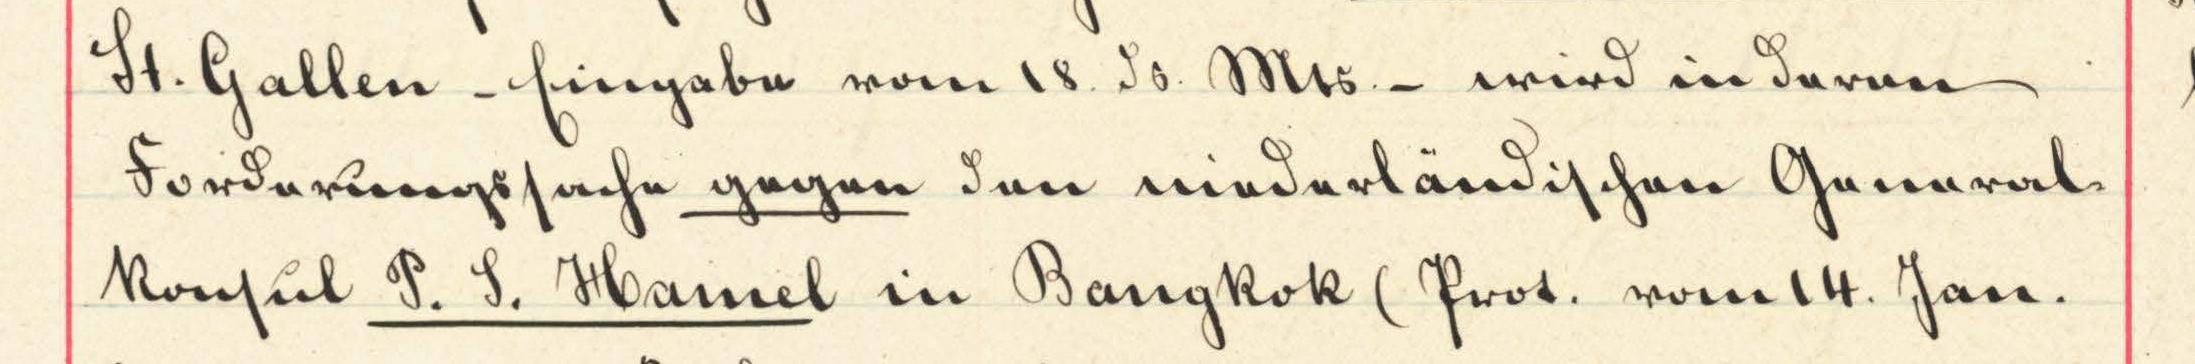 St. Gallen - Eingabe vom 18. ds. Mts. - wird in deren
Forderungssache gegen den niederländischen General-
konsul P. S. Hamel in Bangkok (Prot. vom 14. Jan.